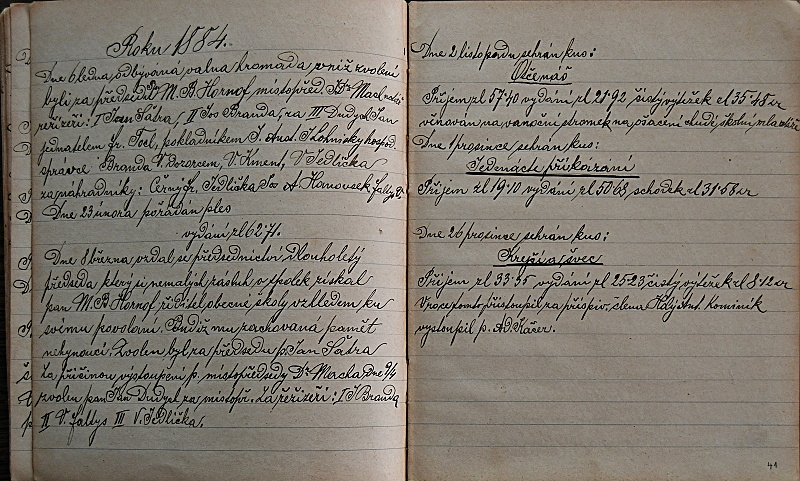 Roku 1884.
Dne 6 ledna odbývána valna hromada v niž zvoleni
byli za předsedu M. B. Hornof místopřed. Dr. Mach
režiséři: I Jan Šátra, II Jos Branda, za III Dudych Jan
jednatelem fr. Tocl, pokladníkem J. Ant. Kohnisky hospod.
správce Branda V. Dozorcem, V. Kment, V Jedlička
za náhradníky: Černy fr. Jedlička Jos A. Hanousek faltys
Dne 23 února pořádán ples
vydání zl 62·71.
Dne 8 března vzdal se předsednictví Dlouholetý
předseda který si nemalých zásluh o spolek získal
pan M. B. Hornof řiditel obecné školy vzhledem ku
svému povolání. Budiž mu zachovaná pamět
nehynoucí. Zvolen byl za předsedu p. Jan Šátra
Za příčinou vystoupení p. místopředsedy Dr. Macha Dne 9/4
zvolen pan Jan Dudych za místopř. Za režiséři: I J Branda
II V. faltys III V. Jedlička.
Dne 2 listopadu sehrán kus:
Otčenáš
Příjem zl 57·40 vydání zl 21·92 čistý výtěžek zl 35·48 kr
věnován na vánoční stromek na ošacení chudé školní mládeže
Dne 1 prosince sehrán kus:
Jedenácté přikázání
Příjem zl 19·10 vydání zl 50·68, schodek zl 31·58 kr
Dne 26 prosince sehrán kus:
Krejčí a švec
Příjem zl 33·35 vydání zl 25·23 čistý výtěžek zl 8·12 kr
V roce tomto přistoupil za přispiv. člena Ant. Kominík
vystoupil p. Ad. Káčer.
41